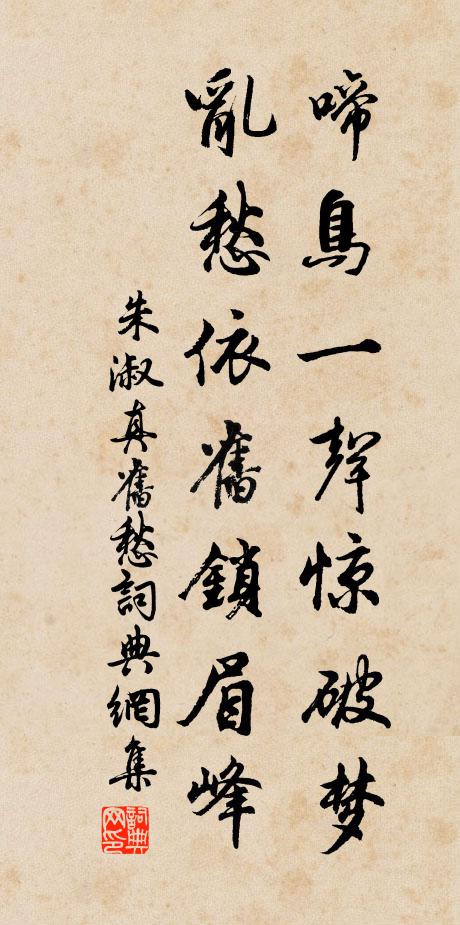 啼鳥一聲惊破梦
亂愁依舊鎖眉峰
朱淑真舊愁詞典網集
詞典
网印